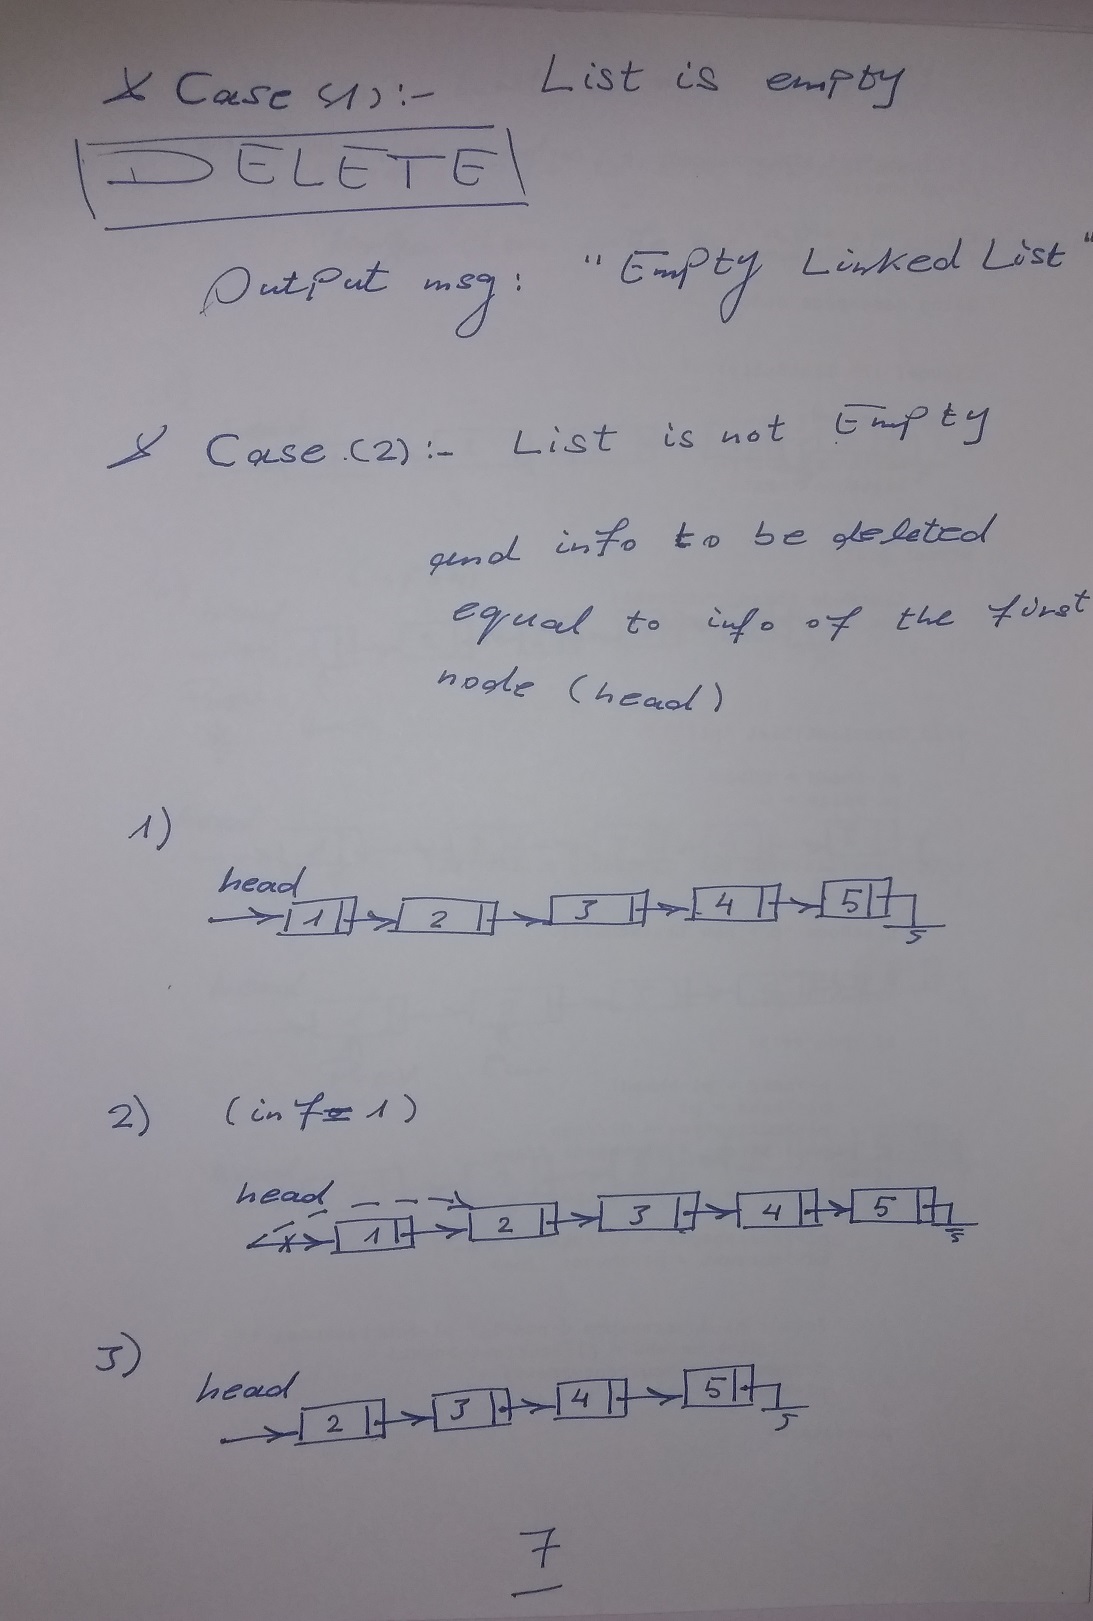 Case (1):- List is empty
DELETE
Output msg: "Empty Linked List"
Case (2):- List is not Empty
and info to be deleted
equal to info of the first
node (head)
1)
head
1 2 3 4 5
2) (inf = 1)
head
1 2 3 4 5
3)
head
2 3 4 5
7